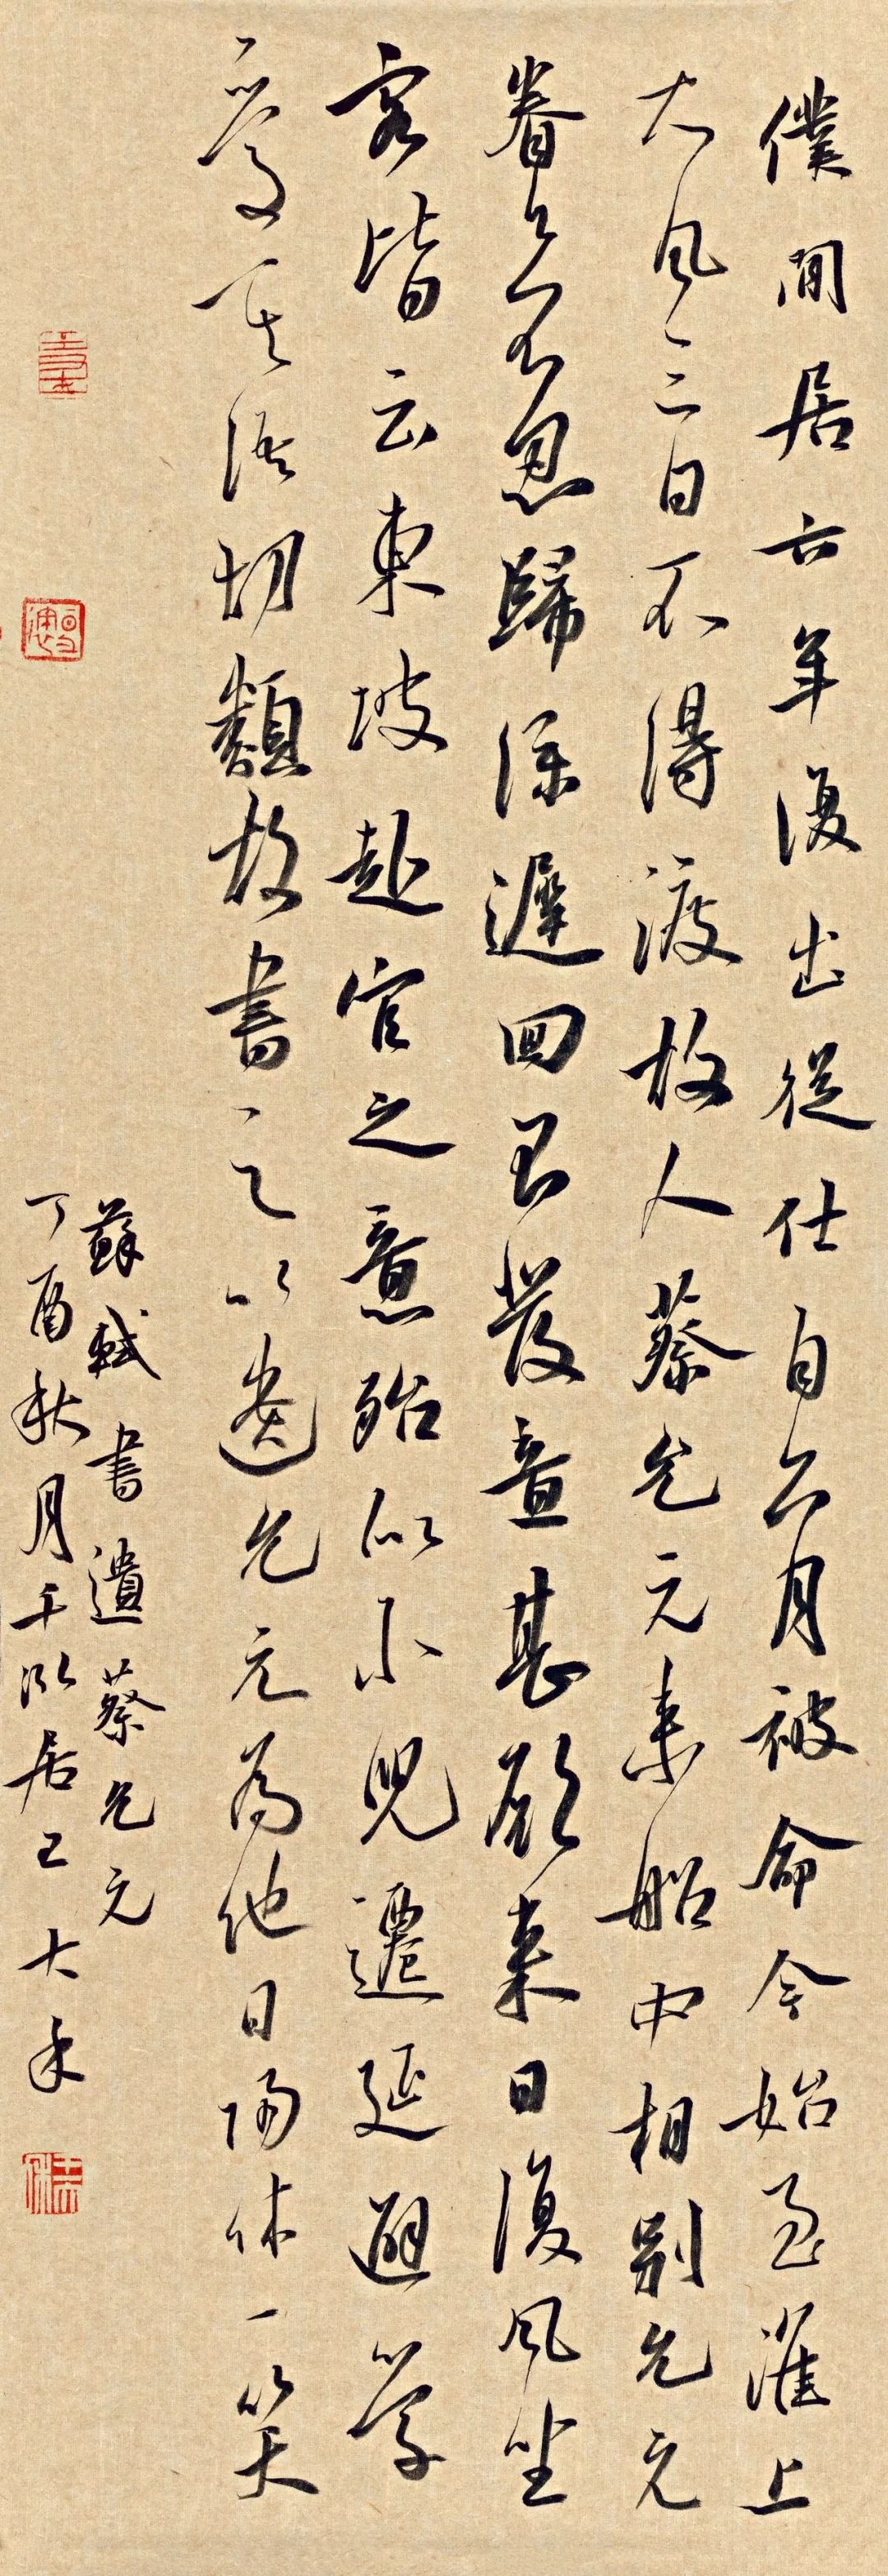 僕閒居六年復出從仕自六月被命今始至淮上
大風三日不得渡故人蔡允元来船中相別允元
眷々不忍歸深遲回不發意甚願来日復風坐
客皆云東坡赴官之意殆似小兒遷延避學
愛其語切類故書之以遺允元為他日歸休一笑
蘇軾書遺蔡允元
丁酉秋月千泓居王大禾